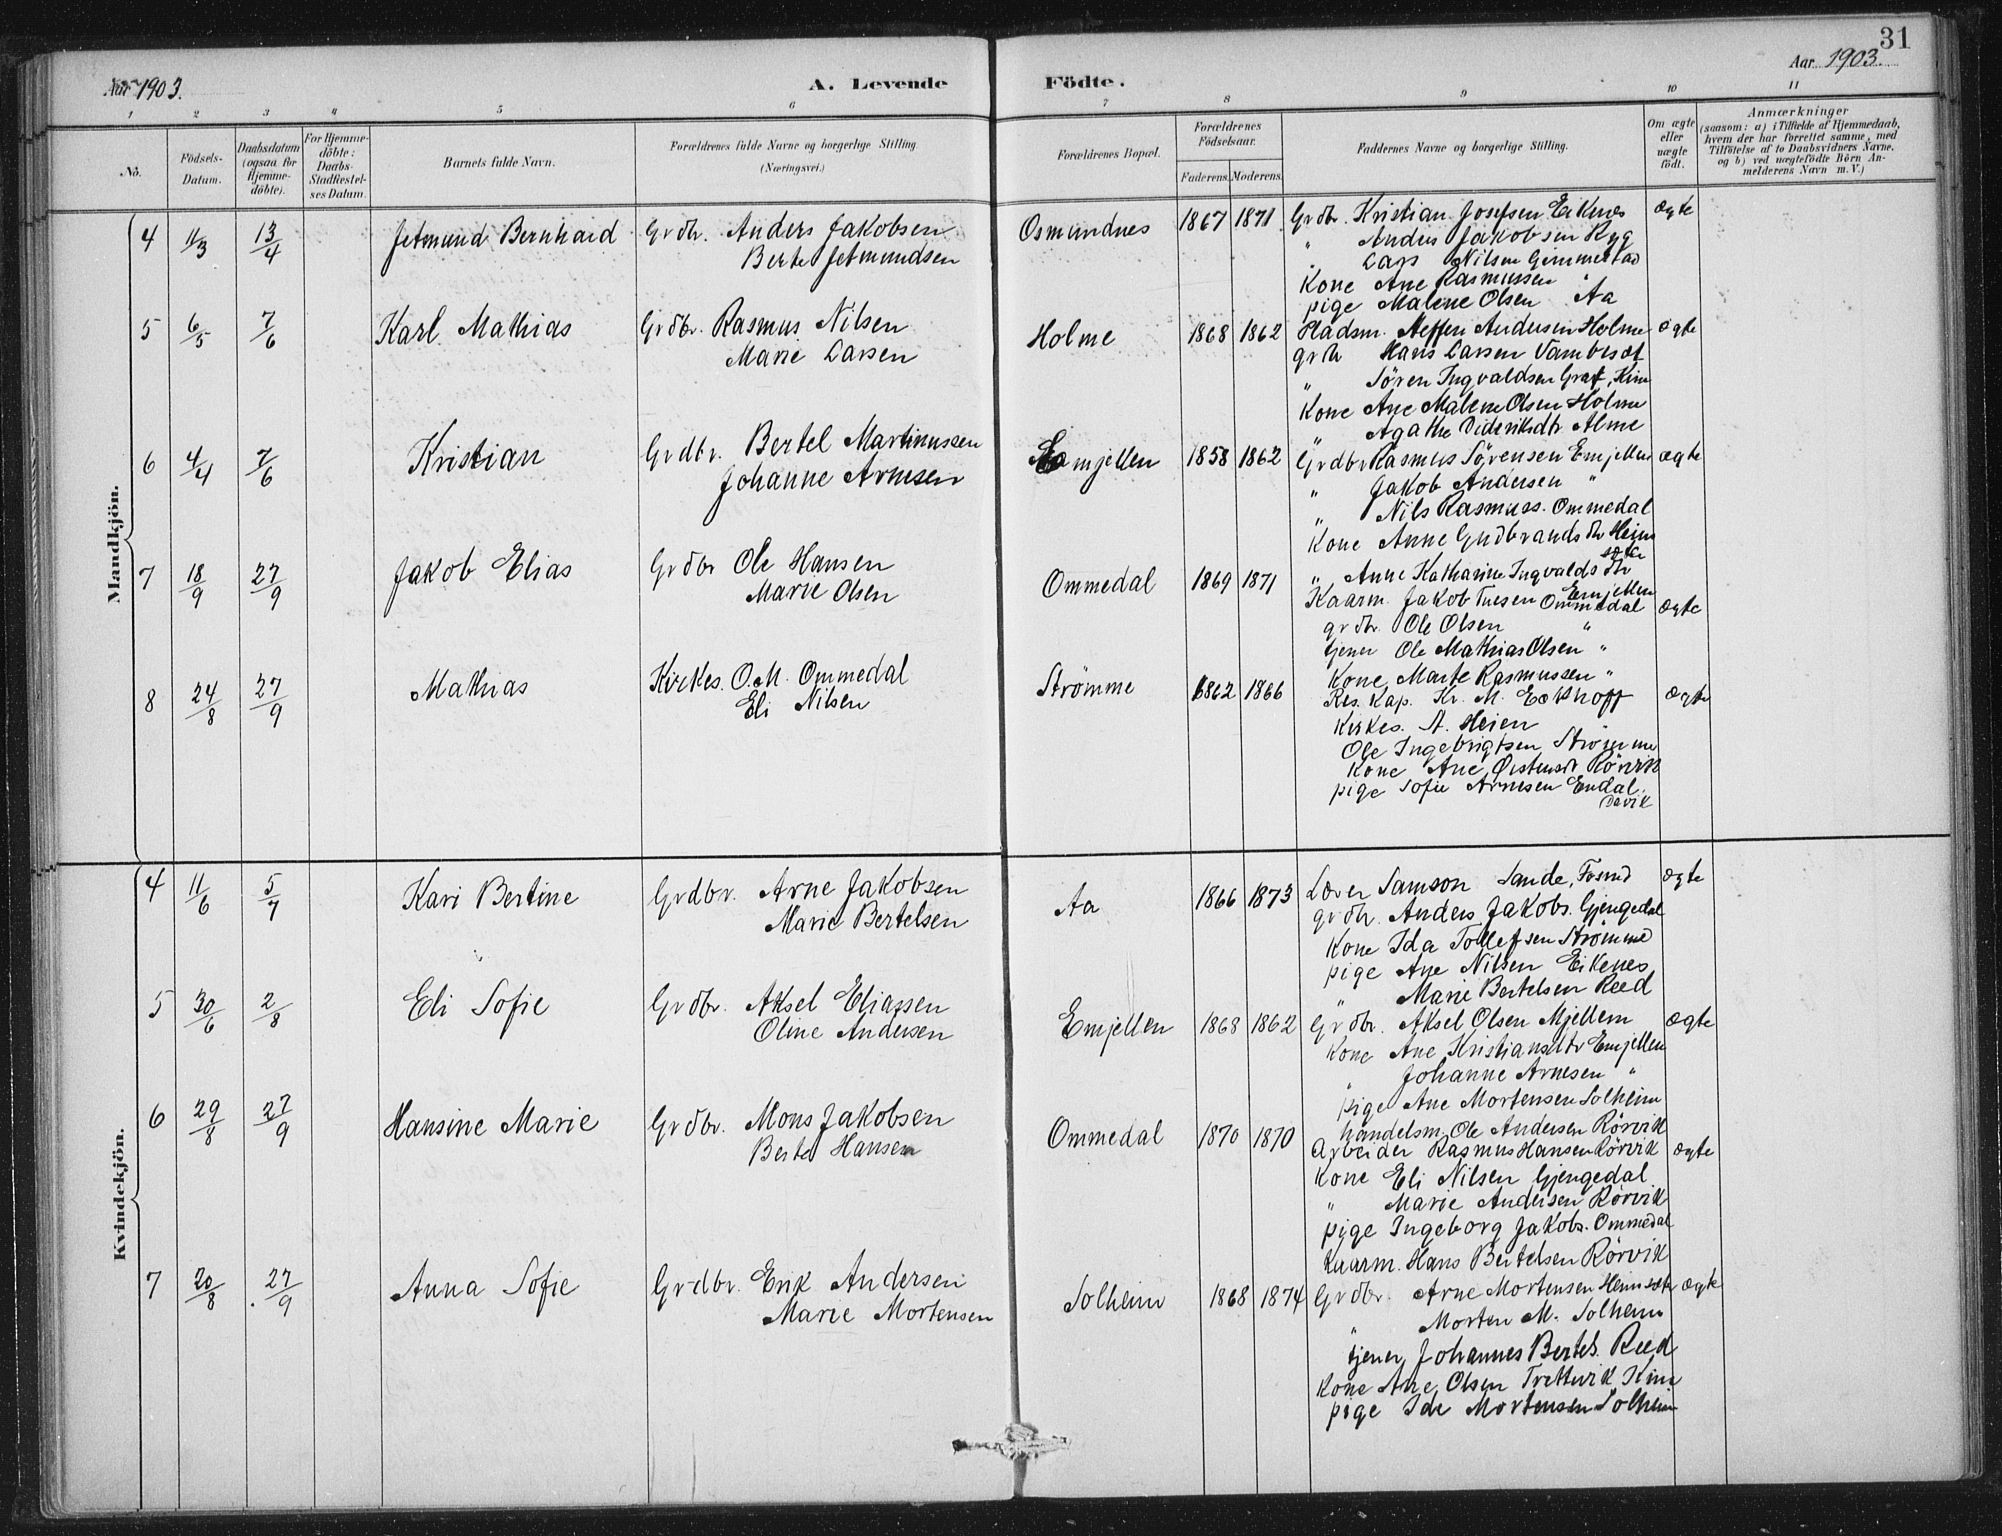 31
Aar 1903.
A. Levende
Födte.
Aar 1903.
1 2 3 4 5 6 7 8 9 10 11
No.
Födsels-Datum.
Daabsdatum (ogsaa for Hjemmedöbte).
For Hjemmedöbte: Daabs-Stadfæstelses Datum.
Barnets fulde Navn.
Forældrenes fulde Navne og borgerlige Stilling.
(Næringsvei.)
Forældrenes Bopæl.
Forældrenes Födselsaar.
Faderens. Moderens.
Faddernes Navne og borgerlige Stilling.
Om ægte eller uægte födt.
Anmærkninger
(saasom: a) i Tilfælde af Hjemmedaab, hvem der har forrettet samme, med Tilföielse af to Daabsvidners Navne, og b) ved uægtefödte Börn Anmelderens Navn m. V.)
Mandkjön.
4 11/3 13/4 Jetmund Bernhard Grdbr. Anders Jakobsen
Berte Jetmundsen
Osmundnes 1867 1871 Grdbr. Kristian Josefsen Eikenes ægte
" Anders Jakobsen Ryg
" Lars Nilsen Gimmestad
Kone Ane Rasmussen "
pige Malene Olsen Aa
5 6/5 7/6 Karl Mathias Grdbr. Rasmus Nilsen
Marie Larsen
Holme 1868 1862 Pladsm. Steffen Andersen Holme ægte
grdbr Hans Larsen Vambeset
" Sören Ingvaldsen Kinn
Kone Ane Malene Olsen Holme
" Agathe Didriksdtr Alme
6 4/4 7/6 Kristian Grdbr. Bertel Martinussen
Johanne Arnesen
Emjellen 1858 1862 Grdbr Rasmus Sörensen Emjellen ægte
" Jakob Andersen "
" Nils Rasmuss. Ommedal
Kone Anne Gudbrandsdtr Heimsæter
" Anne Katharine Ingvaldsdtr Emjellen
7 18/9 27/9 Jakob Elias Grdbr Ole Hansen
Marie Olsen
Ommedal 1869 1871
Kaarm. Jakob Tuesen Ommedal ægte
grdbr. Ole Olsen "
tjener Ole Mathias Olsen "
Kone Marte Rasmussen "
8 24/8 27/9 Mathias Kirkes. O. M. Ommedal
Eli Nilsen
Strømme 1862 1866 Res. Kap. Kr. M. Eckhoff ægte
Kirkes. A. Heien
Ole Ingebrigtsen Strömme
Kone Ane Östensdr Rörvik
pige Sofie Arnesen Endal
Davik
Kvindekjön.
4 11/6 5/7 Kari Bertine Grdbr. Arne Jakobsen
Marie Bertelsen
Aa 1866 1873 Lærer Samson Sande, ægte
grdbr. Anders Jakobs. Gjengedal
Kone Ida Tollefsen Strømme
pige Ane Nilsen Eikenes
" Marie Bertelsen Reed
5 30/6 2/8 Eli Sofie Grdbr. Aksel Eliassen
Oline Andersen
Emjellen 1868 1862 Grdbr. Aksel Olsen Mjellem ægte
Kone Ane Kristiansdtr Emjellen
" Johanne Arnesen "
pige Ane Mortensen Solheim
handelsm. Ole Andersen Rörvik
6 29/8 27/9 Hansine Marie Grdbr. Mons Jakobsen
Berte Hansen
Ommedal 1870 1870 Arbeider Rasmus Hansen Rörvik ægte
Kone Eli Nilsen Gjengedal
" Marie Andersen Rörvik
pige Ingeborg Jakobs. Ommedal
Kaarm. Hans Bertelsen Rörvik
7 20/8 27/9 Anna Sofie Grdbr. Erik Andersen
Marie Mortensen
Solheim 1868 1874 Grdbr. Arne Mortensen Heimsæter ægte
" Morten M. Solheim
tjener Johannes Bertels. Reed
Kone Ane Olsen Trettevik Kinn
pige Ida Mortensen Solheim